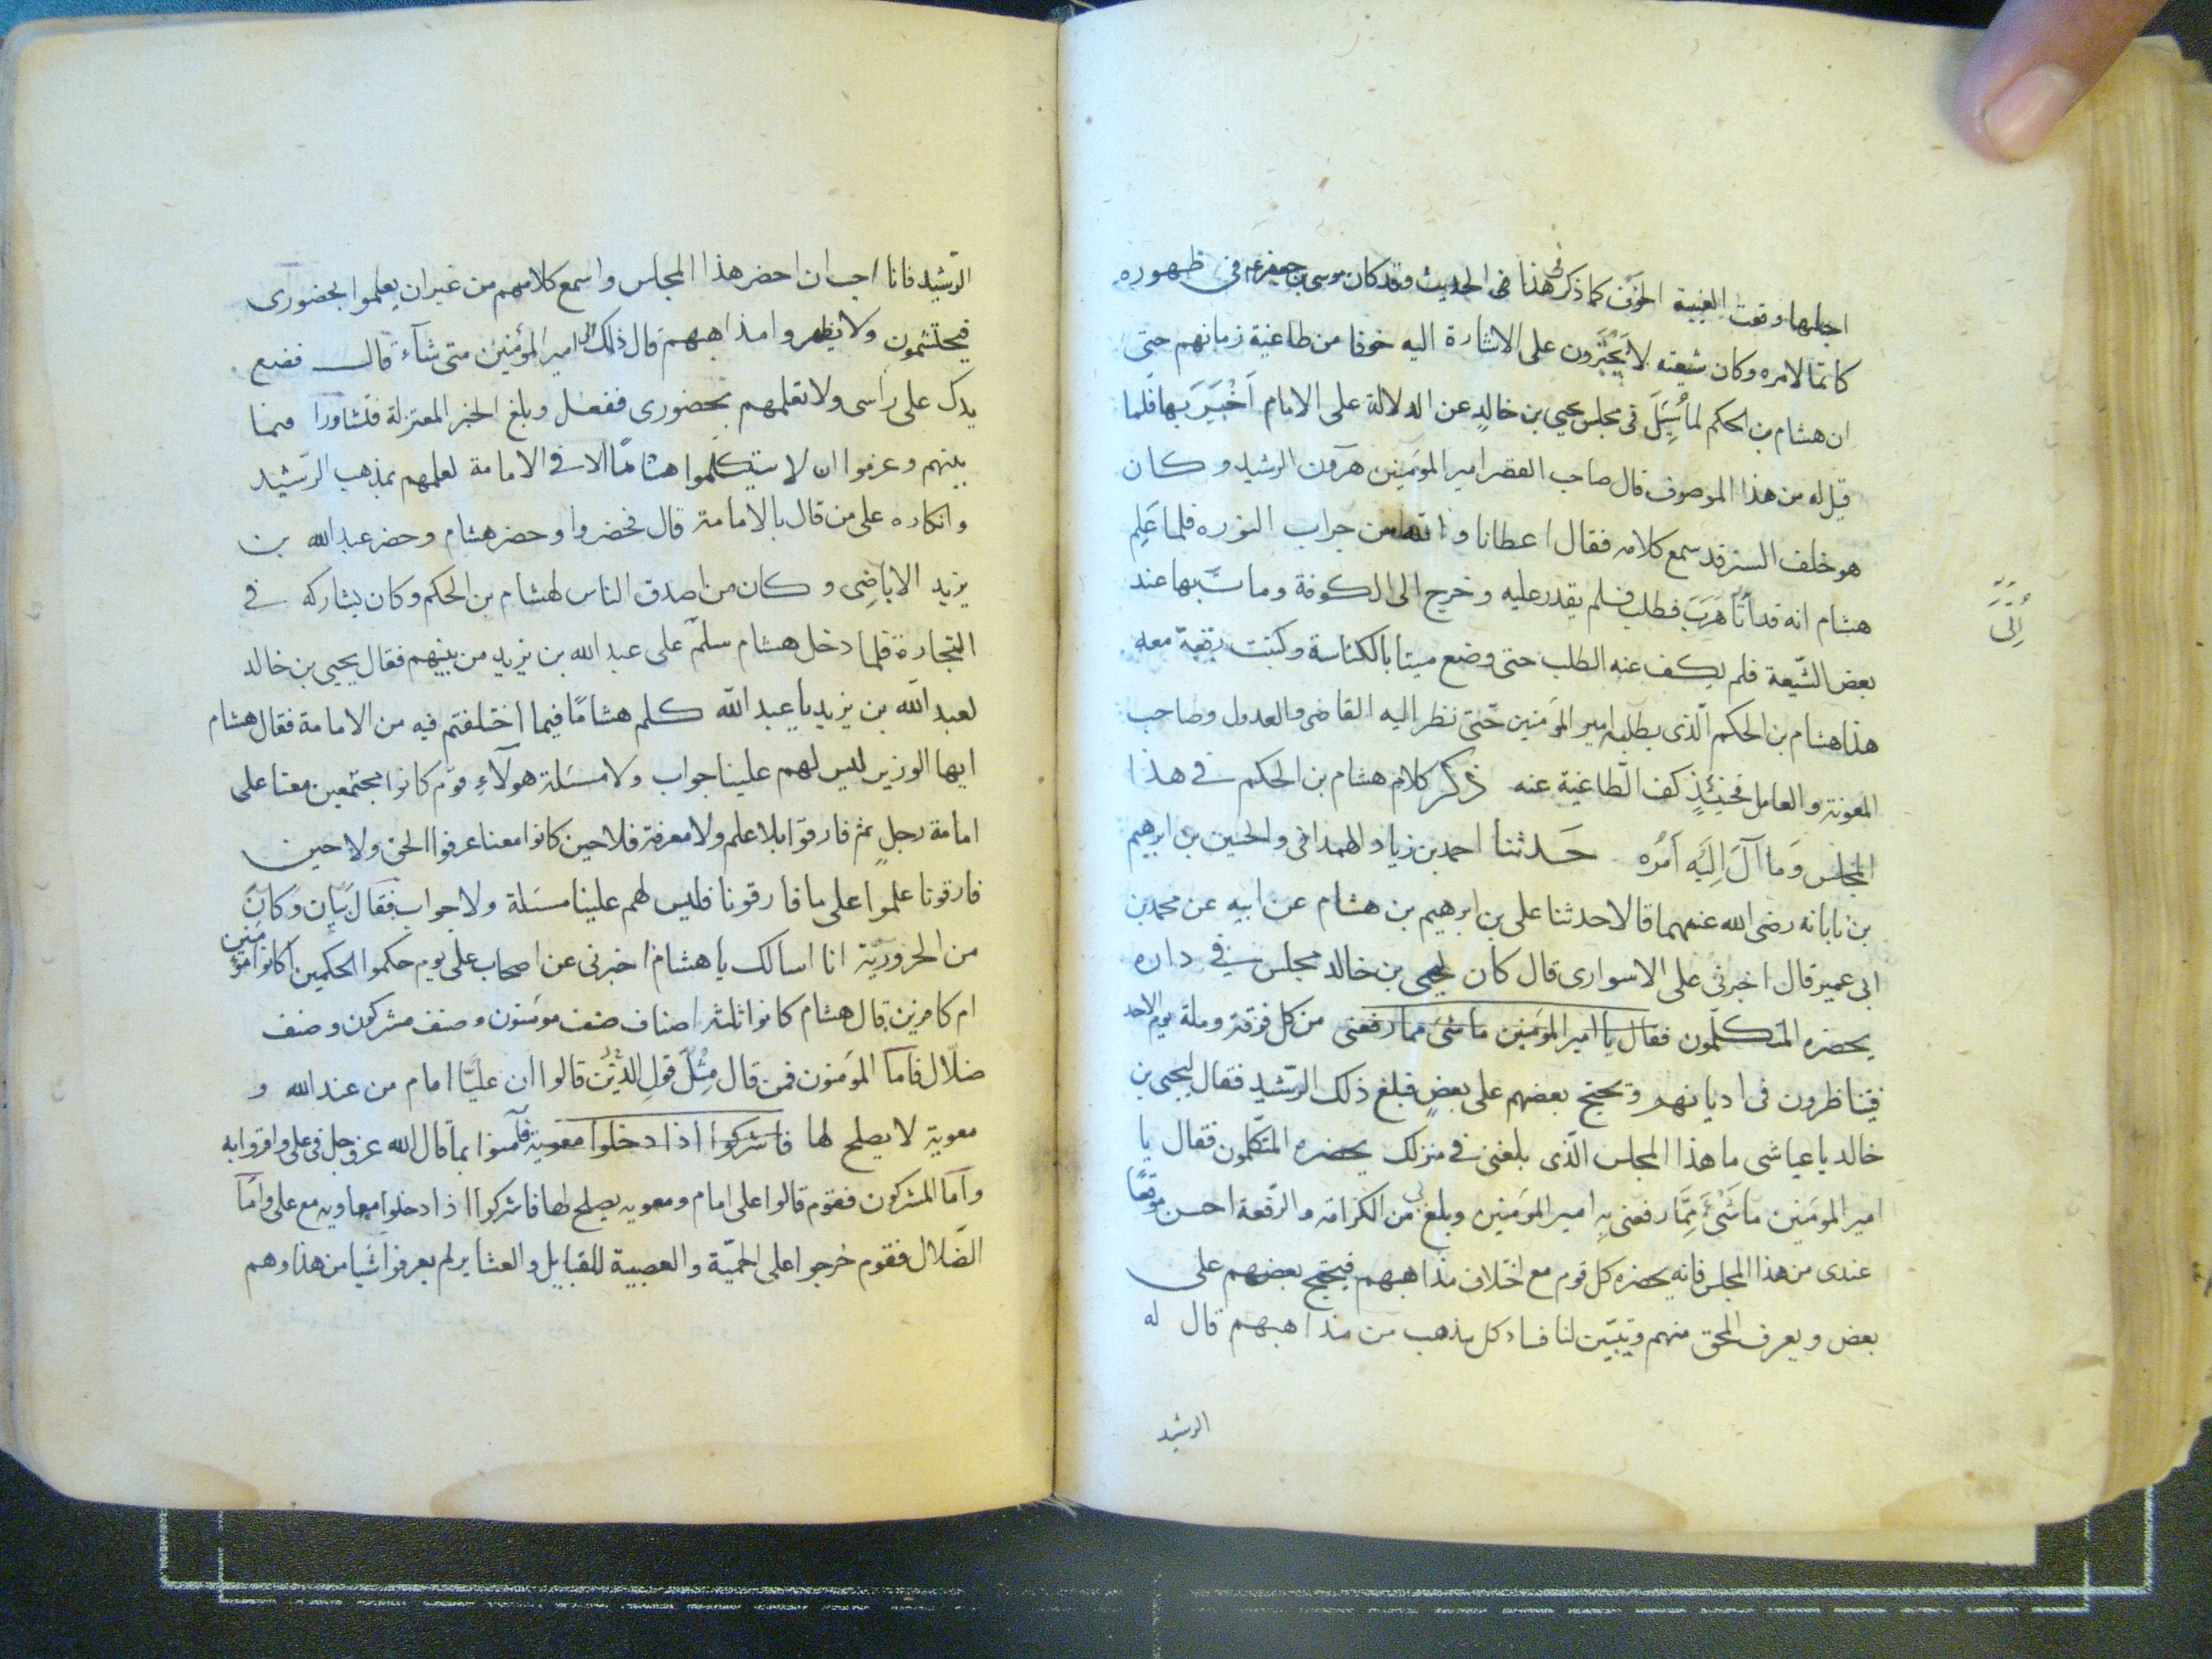 اجلها وقعت الغيبة الخوف كما ذكر فى هذا فى الحديث وقد كان موسى بن جعفر عم فى ظهوره
كاتما لامره وكان شيعته لا يجترون على الاشارة اليه خوفا من طاغية زمانهم حتى
ان هشام بن الحكم لما سُئِلَ فى مجلس يحيى بن خالدٍ عن الدلالة على الامام اَخْبَرَ بها فلما
قيل له من هذا الموصوف قال صاحب القصر امير المؤمنين هرون الرشيد وكان
هو خلف الستر قد سمع كلامه فقال اعطانا والله من جراب النوره فلما عَلِم
هشام انه قد اُتِىَ هَرَبَ فطلب فلم يقدر عليه وخرج الى الكوفة ومات بها عند
اُتِىَ
بعض الشّيعة فلم يكف عنه الطلب حتى وضع ميتا بالكناسة وكتبت رقعة معه
هذا هشام بن الحكم الّذى يطلبه امير المؤمنين حتّى نظر اليه القاضى والعدول وصاحب
المعونة والعامل فحينئذٍ كف الطّاغية عنه ذكر كلام هشام بن الحكم فى هذا
المجلس وَما آلَ اِلَيه اَمرُه حَدثنا احمد بن زياد الهمدانى والحسين بن ابرهيم
بن ناتانه رضى الله عنهما قالا حدثنا على بن ابرهيم بن هشام عن ابيه عن محمد بن
ابى عمير قال اخبرنى على الاسوارى قال كان ليحيى بن خالد مجلس فى داره
يحضره المتكلّمون فقال يا امير المؤمنين ما شئ مما رفعنى من كل فرقة وملة يوم الاحد
فيتناظرون فى اديانهم ويحتج بعضهم على بعضٍ فبلغ ذلك الرّشيد فقال ليحيى بن
خالد يا عباسى ما هذا المجلس الّذى بلغنى فى منزلك يحضره المتكلّمون فقال يا
امير المؤمنين ما شَئٌ مِمَّا رفعنى بِهِ امير المؤمنين وبلغ بى من الكرامة والرّفعة احسن موقعًا
عندى من هذا المجلس فانه يحضره كل قوم مع اختلاف مذاهبهم فيحتج بعضهم على
بعض ويعرف المحق منهم ويتبيّن لنا فساد كل مذهب من مذاهبهم قال له
الرشيد
الرّشيد فانا احب ان احضر هذا المجلس واسمع كلامهم من غير ان يعلموا بحضورى
فيحتشمون ولا يظهروا مذاهبهم قال ذلك الى امير المؤمنين متى شآء قال فضع
يدك على راسى ولا تعلمهم بحضورى ففعل وبلغ الخبر المعتزلة فتشاوروا فيما
بينهم وعزموا ان لا يتكلّموا هشامًا الا فى الامامة لعلمهم بمذهب الرّشيد
وانكاره على من قال بالامامة قال فحضروا وحضر هشام وحضر عبد الله بن
يزيد الاباضِى وكان من اصدق الناس لهشام بن الحكم وكان يشاركه فى
التجارة فلما دخل هشام سلّم على عبد الله بن يزيد من بينهم فقال يحيى بن خالد
لعبد الله بن يزيد يا عبد الله كلم هشامًا فيما اختلفتم فيه من الامامة فقال هشام
ايها الوزير ليس لهم علينا جواب ولا مسئلة هولآءِ قوم كانوا مجتمعين معنا على
امامة رجلٍ ثم فارقوا بلا علم ولا معرفة فلا حين كانوا معنا عرفوا الحق ولا حين
فارقونا علموا على ما فارقونا فليس لهم علينا مسئلة ولا جواب فقال بَيان وكان
من الحرورية انا اسالك يا هشام اخبرنى عن اصحاب على يوم حكموا الحكمين اكانوا مؤمنين
ام كافرين قال هشام كانوا ثلثة اصناف صنف مومنون وصنف مشركون وصنف
ضلّال فاما المؤمنون فمن قال مِثْلَ قولِ الذين قالوا ان عليًّا امام من عند الله و
معوية لا يصلح لها فاشركوا اذا دخلوا معوية فآمنوا بما قال الله عز وجل فى على واقروا به
واما المشركون فقوم قالوا على امام ومعويه يصلح لها فاشركوا اذا دخلوا معاويه مع على واما
الضّلال فقوم خرجوا على الحميّة والعصبية للقبايل والعشاير لم يعرفوا شيا من هذا وهم